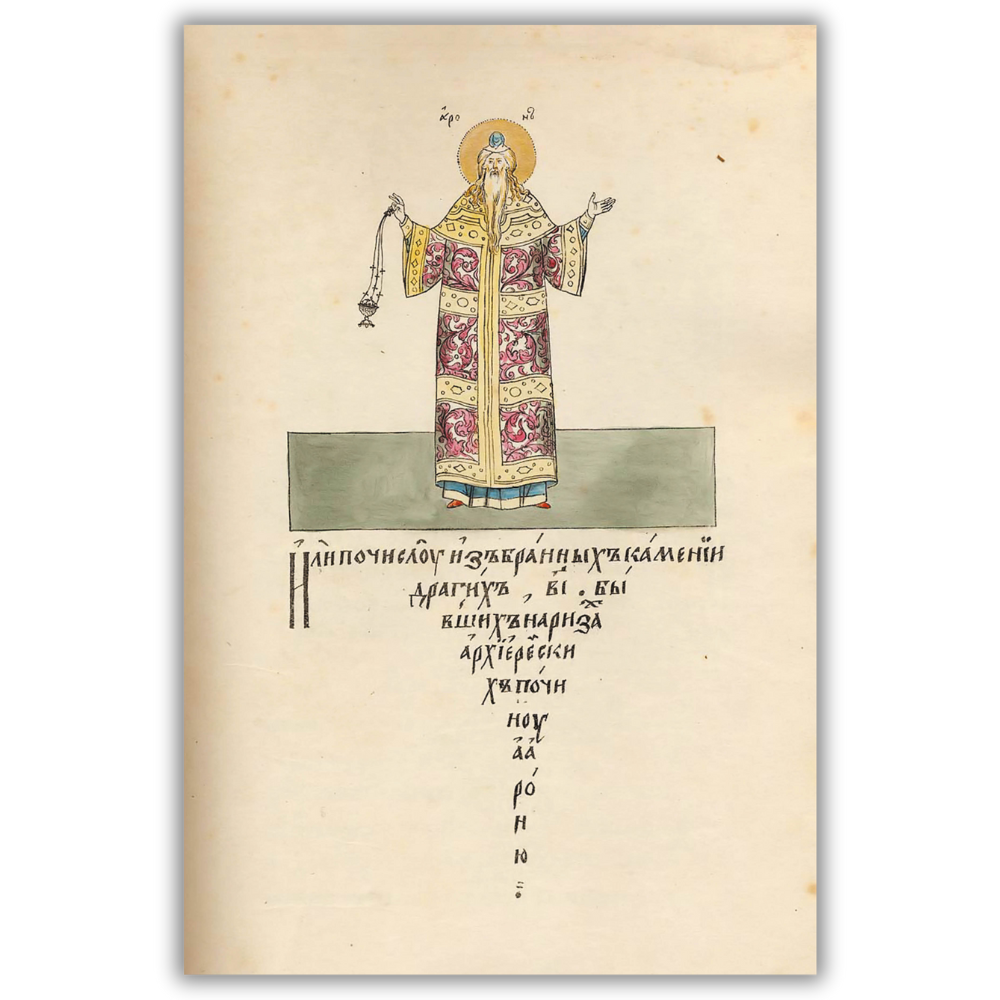 а҆ро нъ
И҆лѝ по числоу и҆збра́нныхъ ка́менїи
драги́хъ, в҃і. бы́
вшихъ на ри́захъ
а҆рхїере́йски
хъ по чи́
ноу
а҆а́
ро́
н
ю